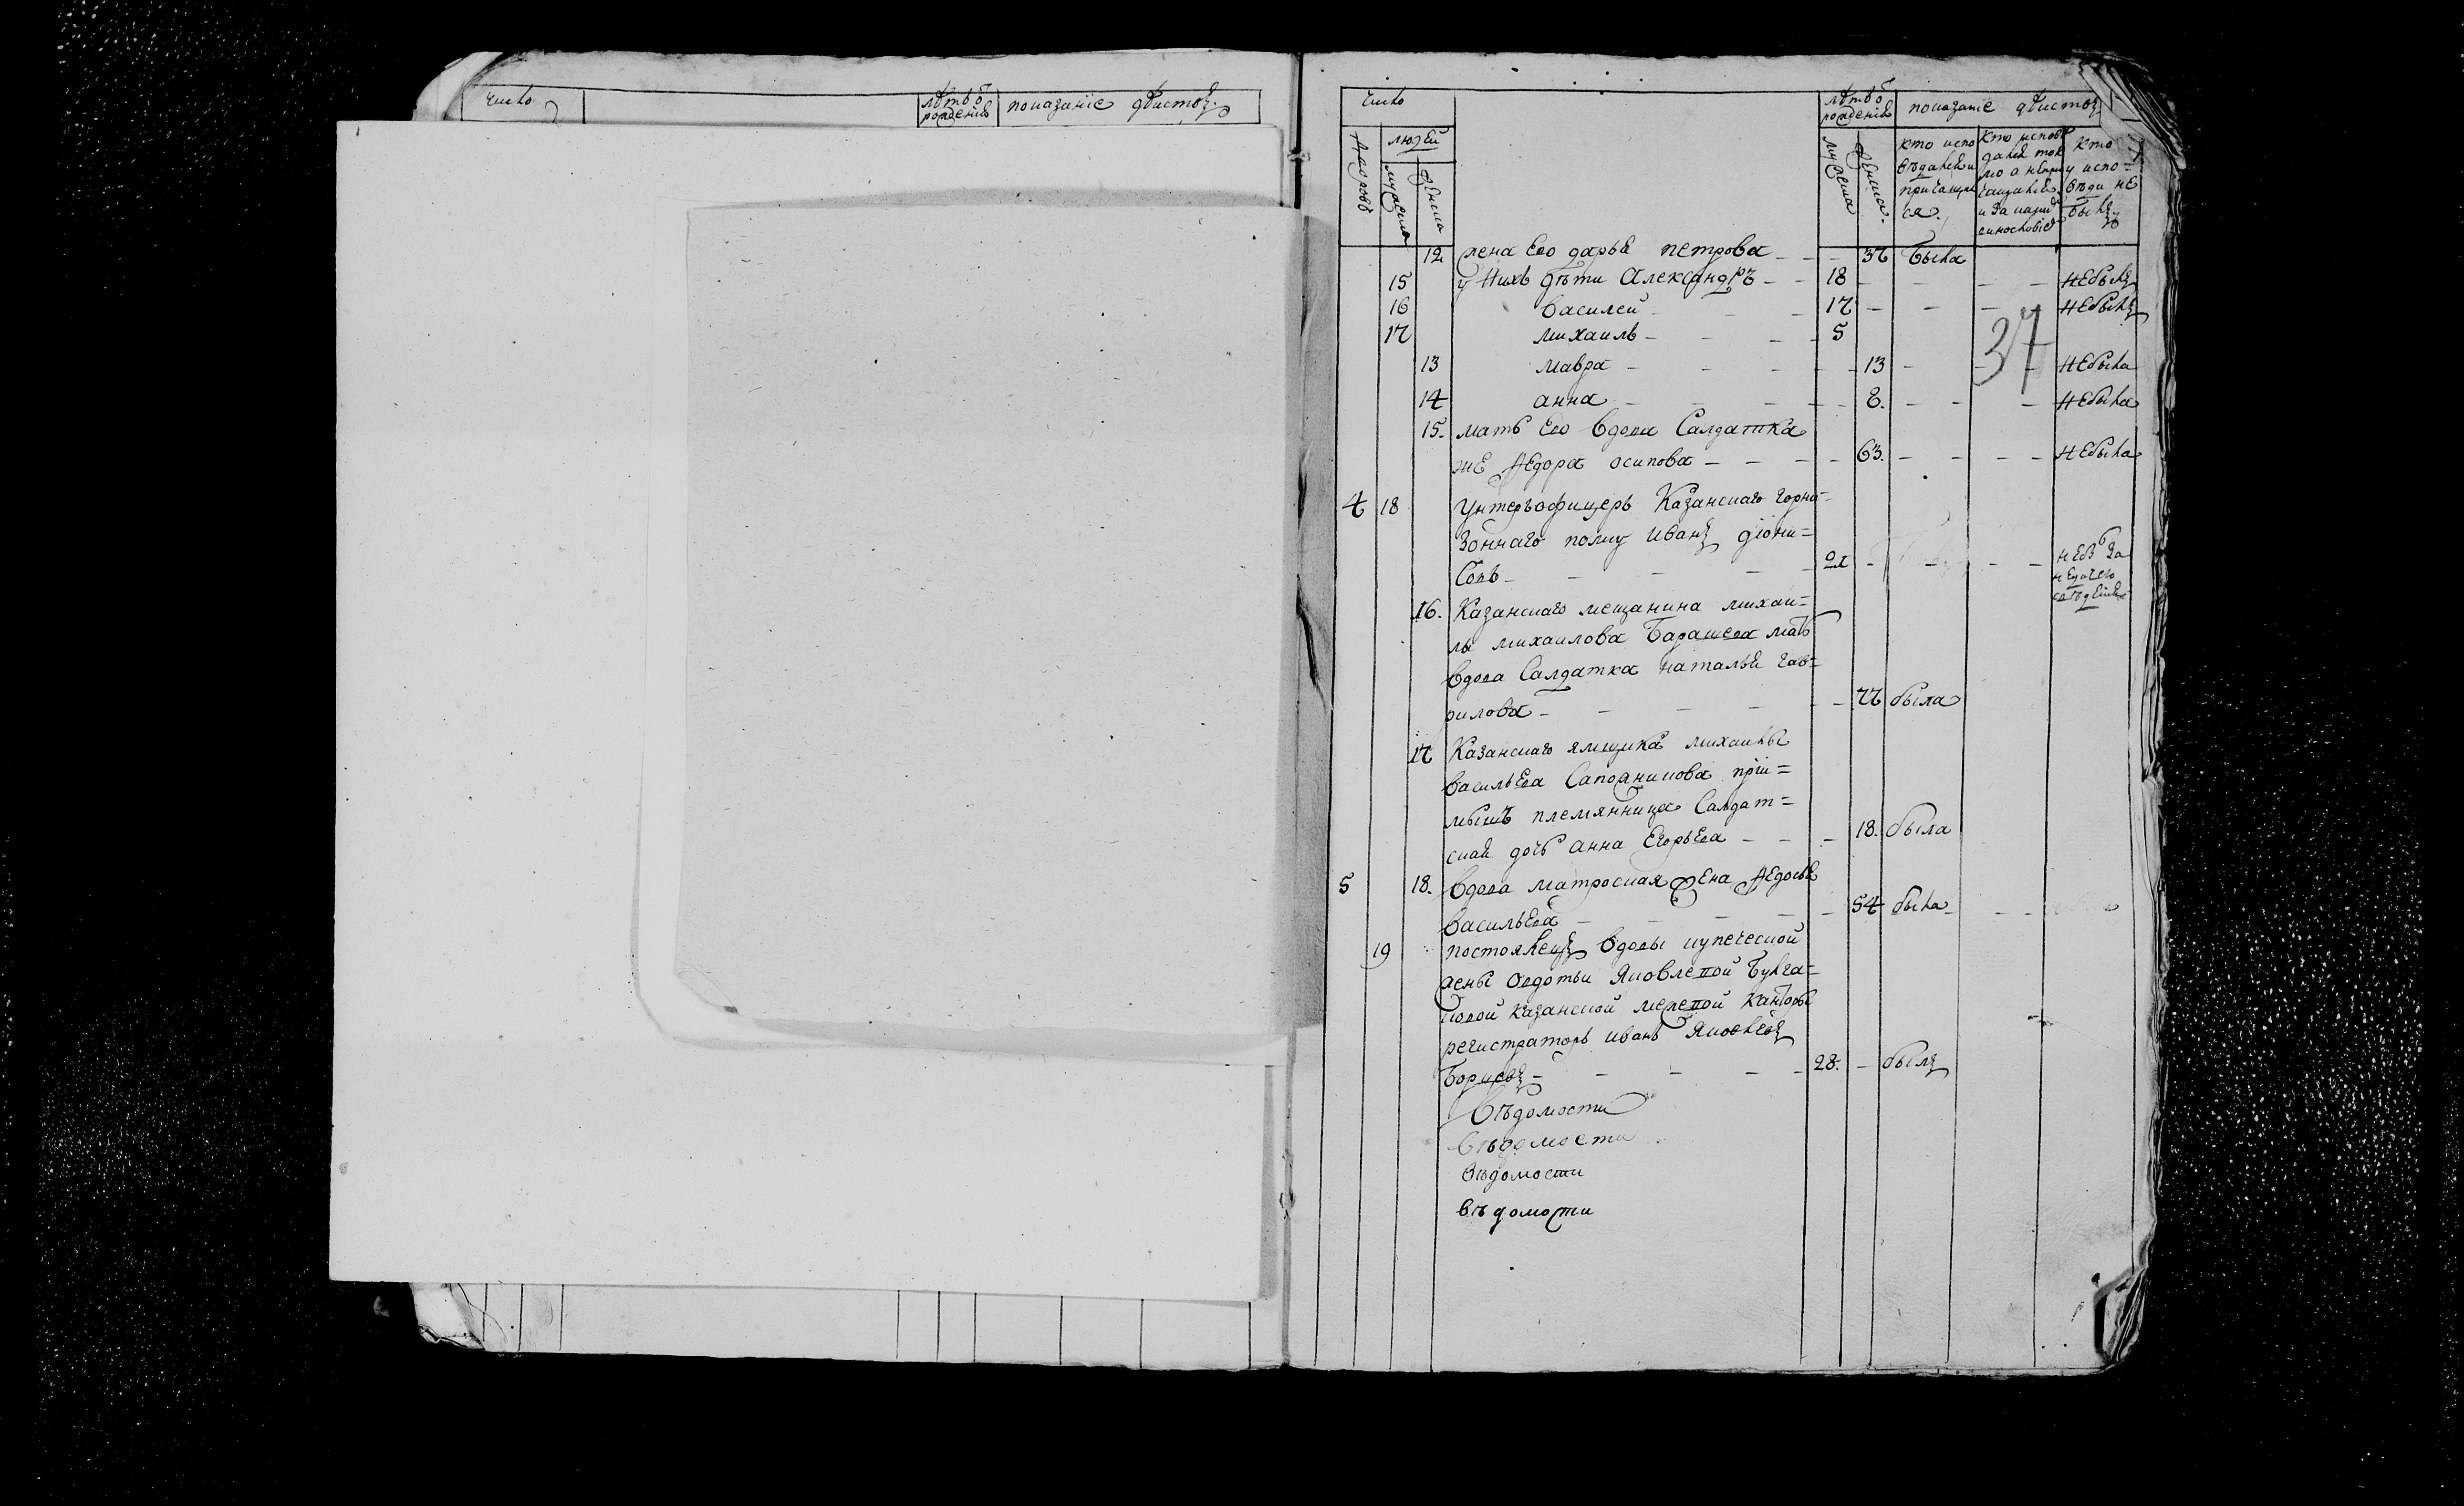 число
лѣтъ ѿ рождениѣ
показаниѣ дѣйство
число
лѣтъ ѿ рождениѣ
показание дѣйство
дворовъ
людей
мужеска
женска
мужеска
женска
кто испо
вѣдалсѧ и
причащал
сѧ
кто испов
далсѧ ток
мо а непри
чащалсѧ
и за каки
виносло
кто
у испо=
вѣди не
былъ
12 жена Его дарья петрова — — 37 была
15 у нихъ дѣти Александръ — — 18 — — — — небылъ
16 василей — — — 17 — — — небылъ
17 михаилъ — — — — 5
37
13 мавра — — — — — 13 — — — небыла
14 анна — — — — 8. — — — небыла
15. мать Его вдова Салдатка
же Ѳедора осипова — — — — 63. — — — — небыла
4 18 Унтеръофицеръ Казанскаго горни=
зоннаго полку иванъ диони=
совъ — — — — — 21 — — — —
16. Казанскаго мещанина михаи=
лы михаилова Барашева мать
вдова Салдатка наталья гав=
рилова — — — — — — 77 была
17 Казанскаго ямщика михаилы
васильева Сапожникова прïи=
мышъ племянница Салдат=
скаѧ дочь анна Егорьева — — — 18. была
5 18. вдова матроская жена Ѳедосья
васильева — — — — — 54 была — — —
19 постоялецъ вдовы купеческой
жены Овдотьи Яковлевой Булга=
ковой казанской межевой канторы
регистраторъ иванъ Яковлевъ
Борисовъ — — — — — 28. — былъ
вѣдомости
вѣдомости
вѣдомости
вѣдомости